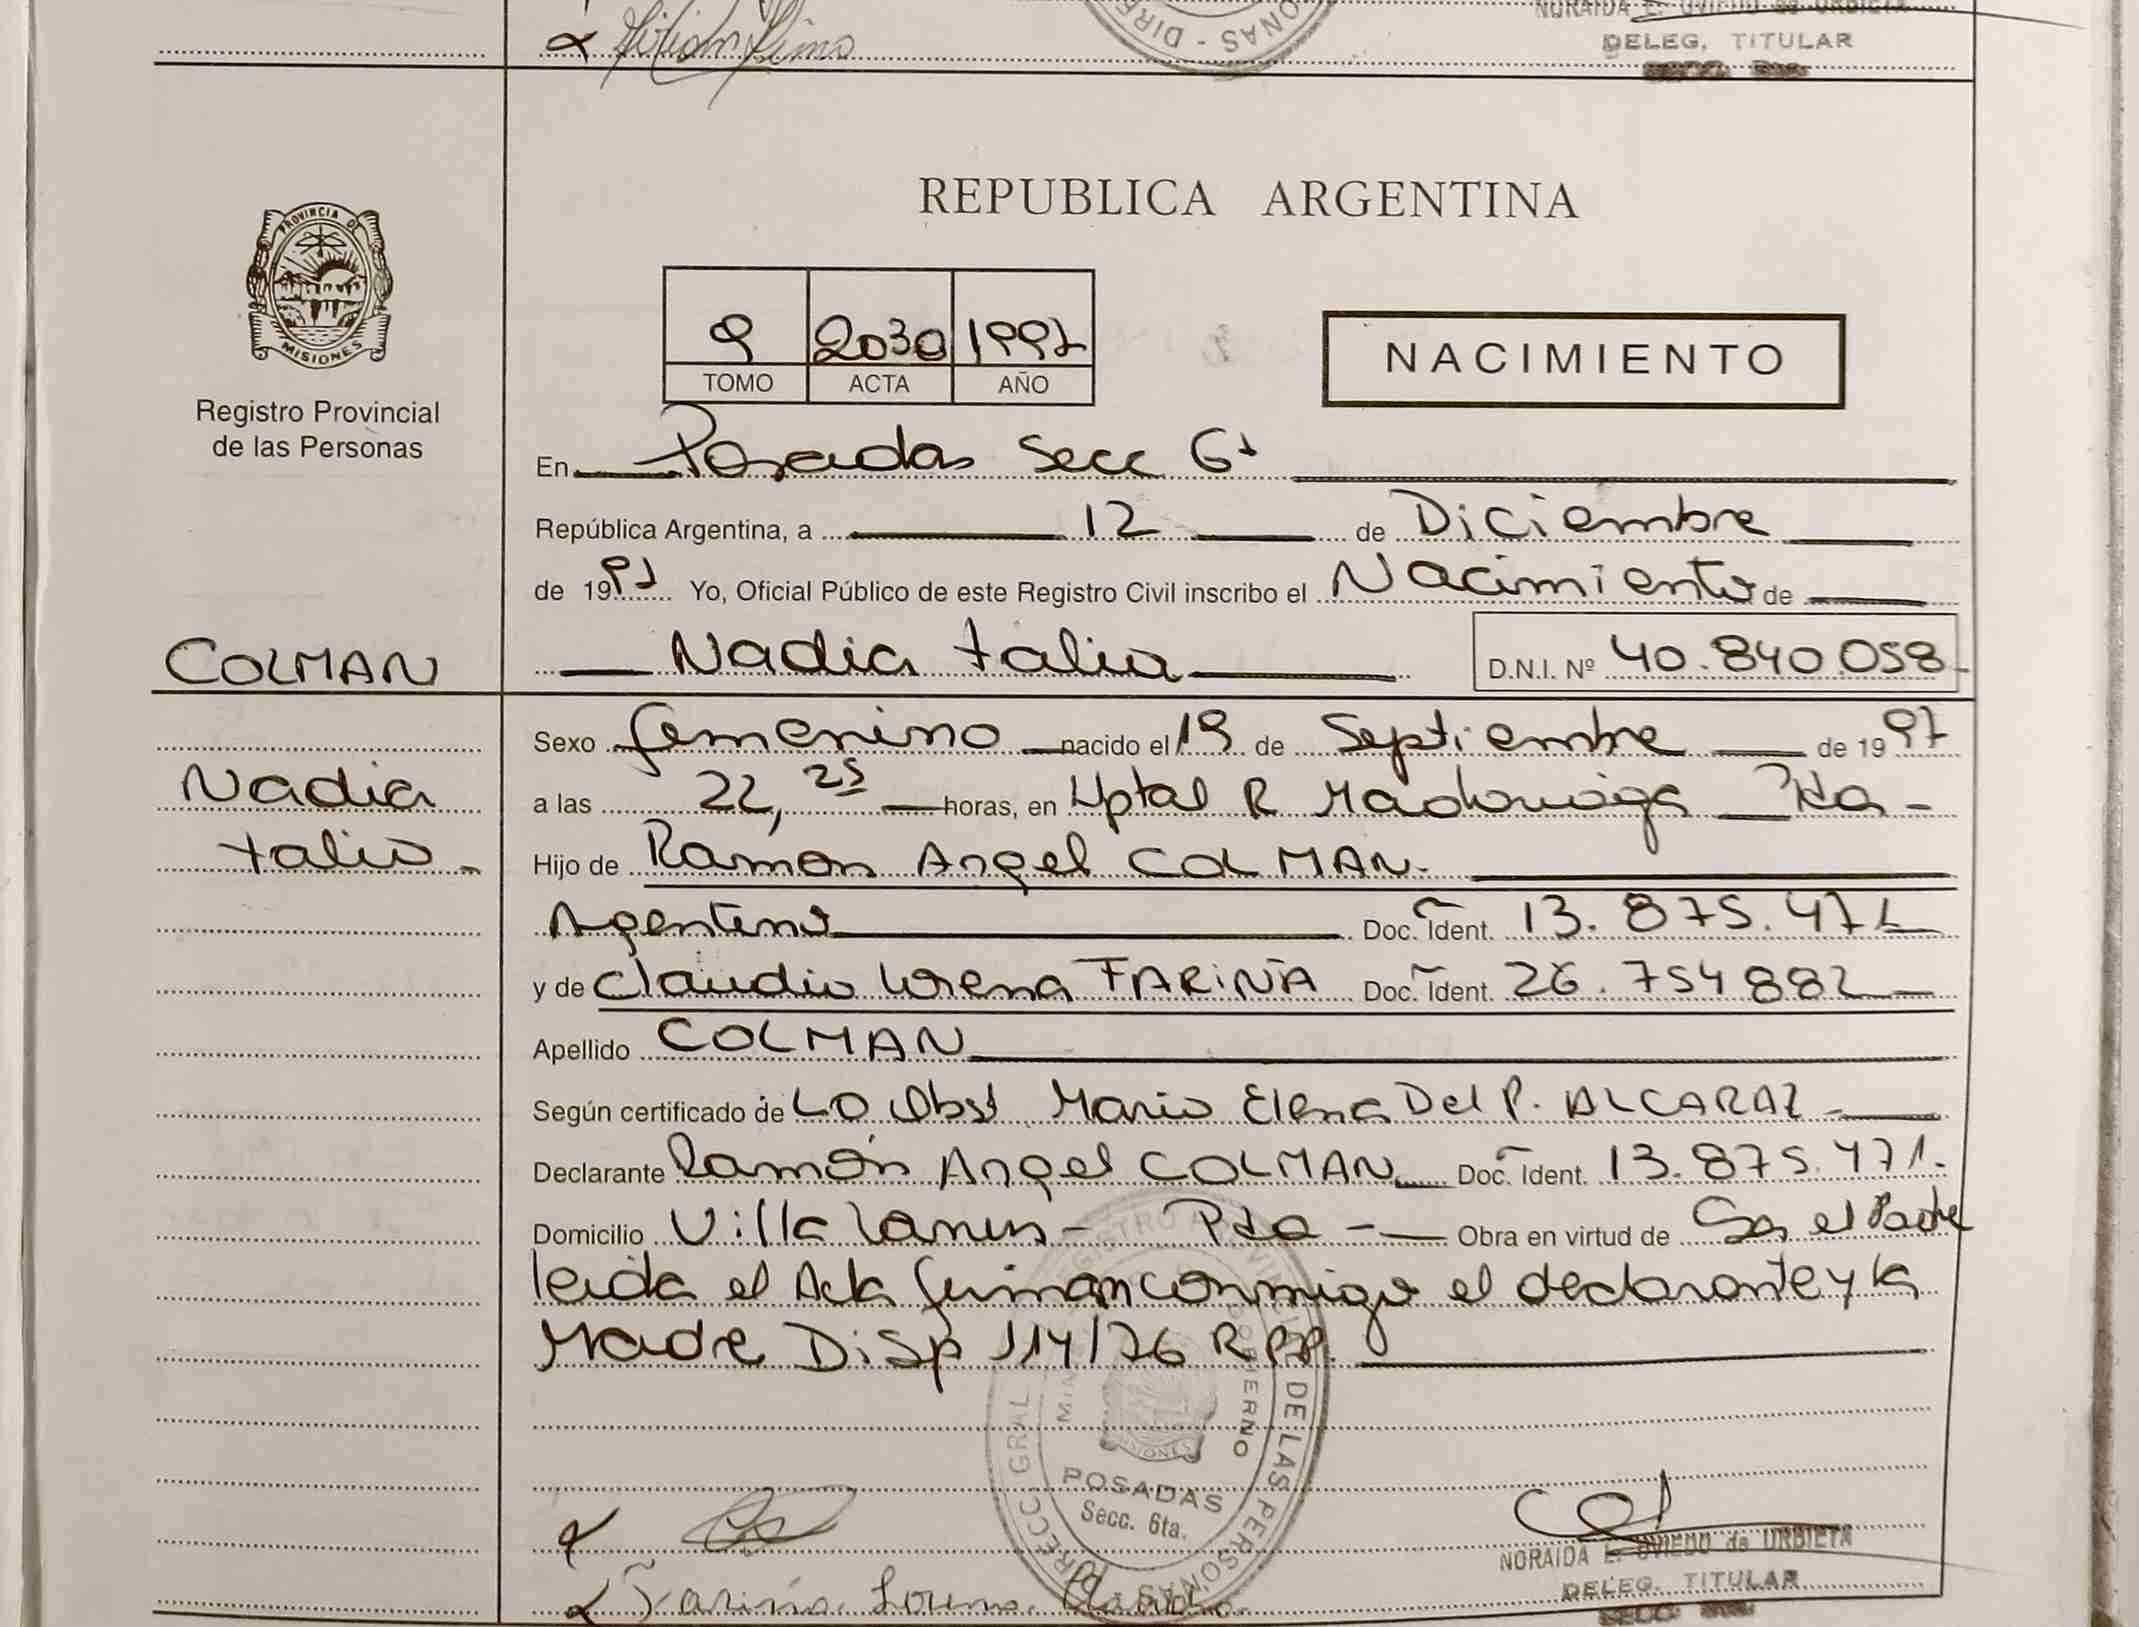 NORAIDA E. OVIEDO de URBIETA
DELEG. TITULAR
REPUBLICA ARGENTINA
PROVINCIA DE
MISIONES
Registro Provincial
de las Personas
9 2030 1997
TOMO ACTA AÑO
NACIMIENTO
En Posadas Secc 6ª
República Argentina, a 12 de Diciembre
de 1997 Yo, Oficial Público de este Registro Civil inscribo el Nacimiento de
COLMAN
Nadia talia D.N.I. Nº 40.840.058
Sexo femenino nacido el 19 de Septiembre de 1997
Nadia
talia
a las 22,25 horas, en Hptal R Madariaga Pdas
Hijo de Ramon Angel COLMAN
Argentino Doc. Ident. 13.875.471
y de Claudia Lorena FARIÑA Doc. Ident. 26.754882
Apellido COLMAN
Según certificado de La Obst Maria Elena Del P. ALCARAZ
Declarante Ramón Angel COLMAN Doc. Ident. 13.875.471.
Domicilio Villa Lanus - Pdas - Obra en virtud de Ser el Padre
leida el Acta firman conmigo el declarante y la
Madre Disp 114/76 RPP.
POSADAS
Secc. 6ta.
NORAIDA E. OVIEDO de URBIETA
DELEG. TITULAR
Fariña Lorena Claudia